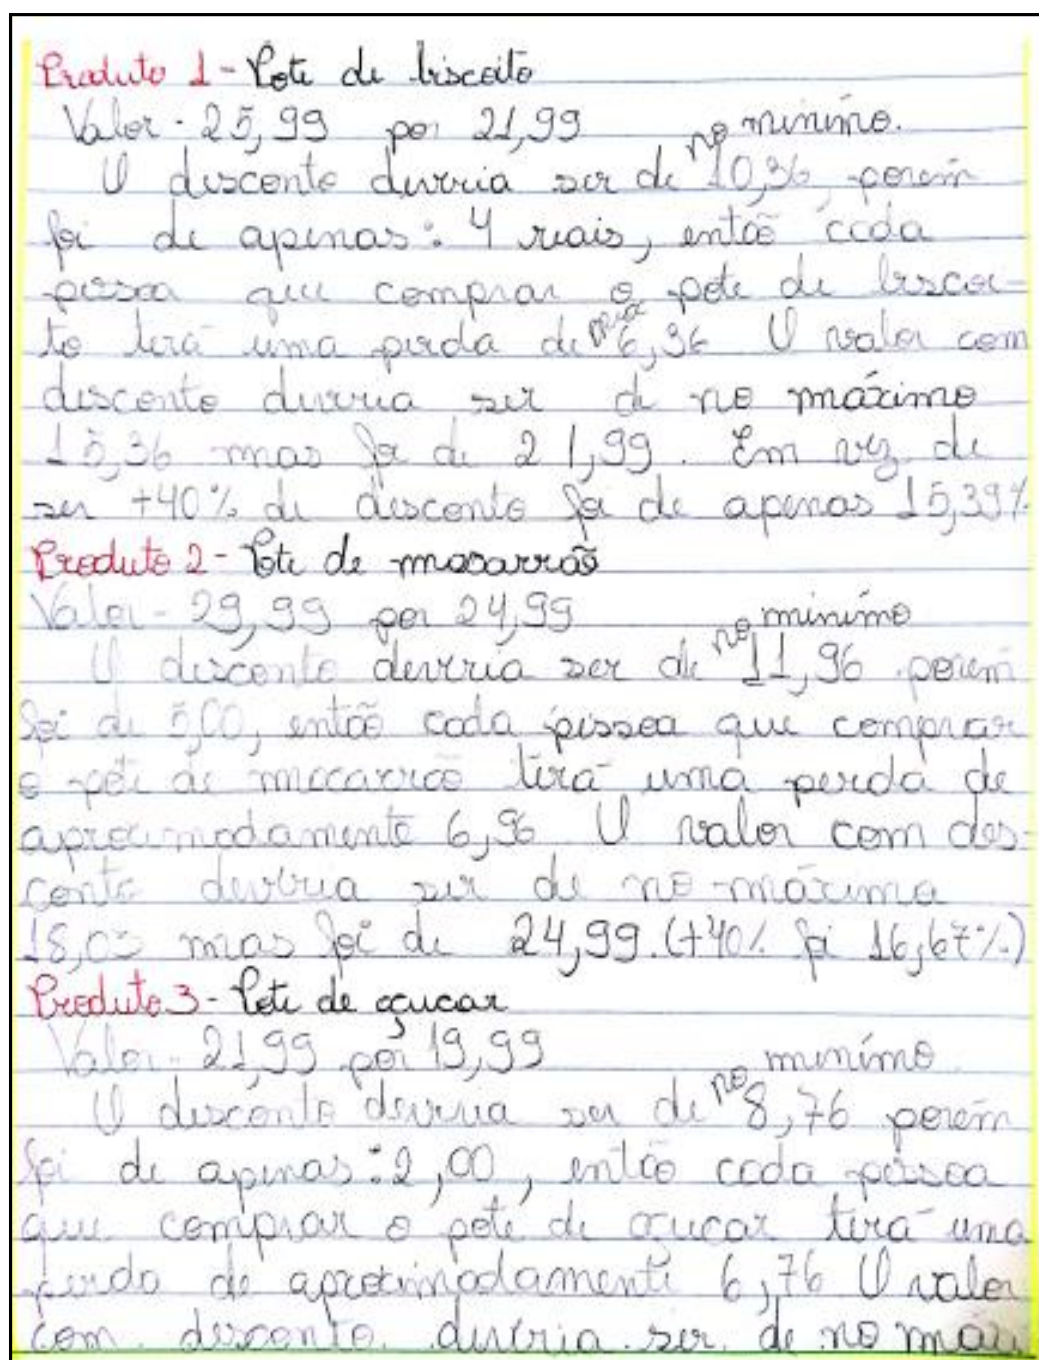 Produto 1 - Pote de biscoito
Valor - 25,99 por 21,99 no minimo.
O desconto deveria ser de 10,36, porém
foi de apenas: 4 reais, então cada
pessoa que comprar o pote de biscoi-
to terá uma perda de 6,36 O valor com
desconto deveria ser de no máximo
15,36 mas foi de 21,99. Em vez de
ser +40% de desconto foi de apenas 15,39%
Produto 2 - Pote de macarrão
Valor - 29,99 por 24,99 no minimo
O desconto deveria ser de 11,96 porém
foi de 5,00, então cada pessoa que comprar
o pote de macarrão terá uma perda de
aproximadamente 6,96 O valor com des-
conto deveria ser de no máximo
18,03 mas foi de 24,99. (+40% foi 16,67%)
Produto 3 - Pote de açucar
Valor - 21,99 por 19,99 no minímo
O desconto deveria ser de 8,76 porém
foi de apenas: 2,00, então cada pessoa
que comprar o pote de açucar terá uma
perda de aproximadamente 6,76 O valor
com desconto deveria ser de no